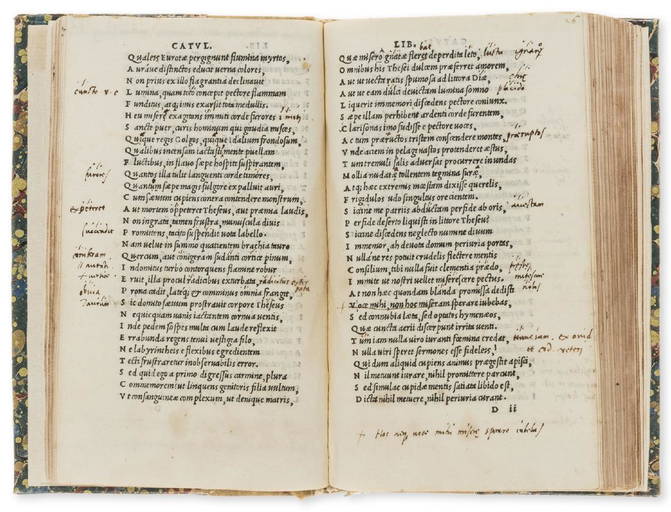 CATVL.
Quales Eurotæ pergignunt flumina myrtos,
A urave distinctos educit verna colores,
N on prius ex illo flagrantia declinavit
L umina, quam toto concepit pectore flammam
F unditus, atq; imis exarsit tota medullis.
H eu misere exagitans immiti corde furores
S ancte puer, curis hominum qui gaudia misces,
Quiq; regis Golgos, quiq; Idalium frondosum,
Qualibus incensam iactastis mente puellam
F luctibus, in flavo sæpe hospite suspirantem,
Quantos illa tulit languenti corde timores,
Quantum sæpe magis fulgore expalluit auri,
C um sævum cupiens contra contendere monstrum,
A ut mortem oppeteret Theseus, aut præmia laudis,
N on ingrata, tamen frustra, munuscula divis
P romittens, tacito suspendit vota labello.
N am velut in summo quatientem brachia tauro
Quercum, aut conigeram sudanti cortice pinum,
I ndomitus turbo contorquens flamine robur
E ruit, illa procul radicibus exturbata,
P rona cadit, lateq; et cominus omnia frangit,
S ic domito sævum prostravit corpore Theseus
N equicquam vanis iactantem cornua ventis,
I nde pedem sospes multa cum laude reflexit
E rrabunda regens tenui vestigia filo,
N e labyrintheis e flexibus egredientem
T ecti frustraretur inobservabilis error.
S ed quid ego a primo digressus carmine, plura
C ommemorem? ut linquens genitoris filia vultum,
V t consanguineæ complexum, ut deniq; matris,
LIB.
Quæ misero gnatæ flerat deperdita leto,
O mnibus his Thesei dulcem præferret amorem,
A ut ut vecta ratis spumosa ad littora Diæ,
A ut ut eam dulci devictam lumina somno
L iquerit immemori discedens pectore coniunx.
S æpe illam perhibent ardenti corde furentem,
C larisonas imo fudisse e pectore voces,
A c tum præruptos tristem conscendere montes,
V nde aciem in pelagi vastos protenderet æstus,
T um tremuli salis adversas procurrere in undas
M ollia nudatæ tollentem tegmina suræ,
A tq; hæc extremis mœstam dixisse querelis,
F rigidulos udo singultus ore cientem.
S iccine me patriis abductam perfide ab oris,
P erfide deserto liquisti in littore Theseu?
S iccine discedens neglecto numine divum
I mmemor, ah devota domum periuria portas,
N ulla ne res potuit crudelis flectere mentis
C onsilium, tibi nulla fuit clementia præsto,
I mmite ut nostri vellet miserescere pectus.
A t non hæc quondam blanda promissa dedisti
V oce mihi, non hoc miseram sperare iubebas,
S ed connubia læta, sed optatos hymenæos,
Quæ cuncta aerii discerpunt irrita venti.
T um iam nulla viro iuranti fœmina credat,
N ulla viri speret sermones esse fideleis,
Qui dum aliquid cupiens animus prægestit apisci,
N il metuunt iurare, nihil promittere parcunt,
S ed simulac cupidæ mentis satiata libido est,
D icta nihil metuere, nihil periuria curant.
D ii